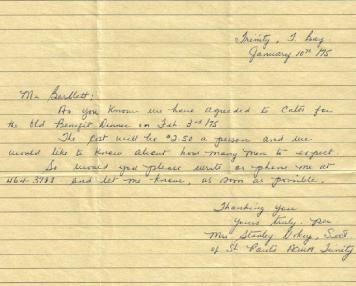 Trinity, T. Bay
January 10th /75
Mr. Bartlett:
As you know we have agreed to cater for
the Old Benefit Dinner on Feb 3rd /75
The cost will be $2.50 a person and we
would like to know about how many men to expect.
So would you please write or phone me at
464-3788 and let me know, as soon as possible.
Thanking you
Yours truly. per
Mrs Stanley Sect
of St Pauls Trinity